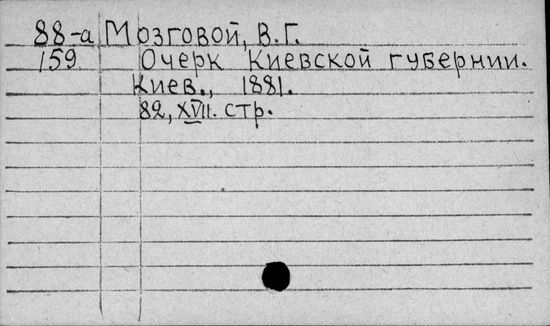 88-а Мозговой, В.Г.
159 Очерк Киевской губернии.
Киев., 1881.
82, XVII. стр.